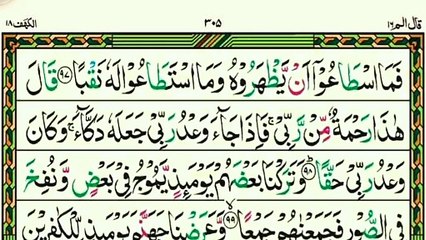 قال الم ١٦ ٣٠٥ الكهف ١٨
فَمَا اسْطَاعُوْۤا اَنْ يَّظْهَرُوْهُ وَمَا اسْتَطَاعُوْا لَهٗ نَقْبًا ﴿٩٧﴾ قَالَ
هٰذَا رَحْمَةٌ مِّنْ رَّبِّيْ ۚ فَاِذَا جَآءَ وَعْدُ رَبِّيْ جَعَلَهٗ دَكَّآءَ ۚ وَكَانَ
وَعْدُ رَبِّيْ حَقًّا ﴿٩٨﴾ وَتَرَكْنَا بَعْضَهُمْ يَوْمَئِذٍ يَّمُوْجُ فِيْ بَعْضٍ وَّنُفِخَ
فِي الصُّوْرِ فَجَمَعْنٰهُمْ جَمْعًا ﴿٩٩﴾ وَّعَرَضْنَا جَهَنَّمَ يَوْمَئِذٍ لِّلْكٰفِرِيْنَ